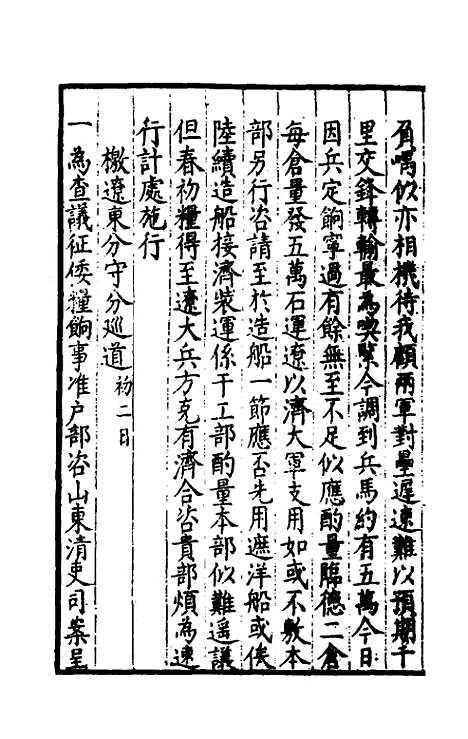 負嵎似亦相機待我顧兩軍對壘遲速難以預期千
里交鋒轉輸最為喫緊今調到兵馬約有五萬今日
因兵定餉寧過有餘無至不足似應酌量臨德二倉
每倉量發五萬石運遼以濟大軍支用如或不敷本
部另行咨請至於造船一節應否先用遮洋船或俟
陸續造船接濟裝運係干工部酌量本部似難遥議
但春初糧得至遼大兵方克有濟合咨貴部煩為速
行計處施行
檄遼東分守分廵道 初二日
一為查議征倭糧餉事准户部咨山東清吏司案呈